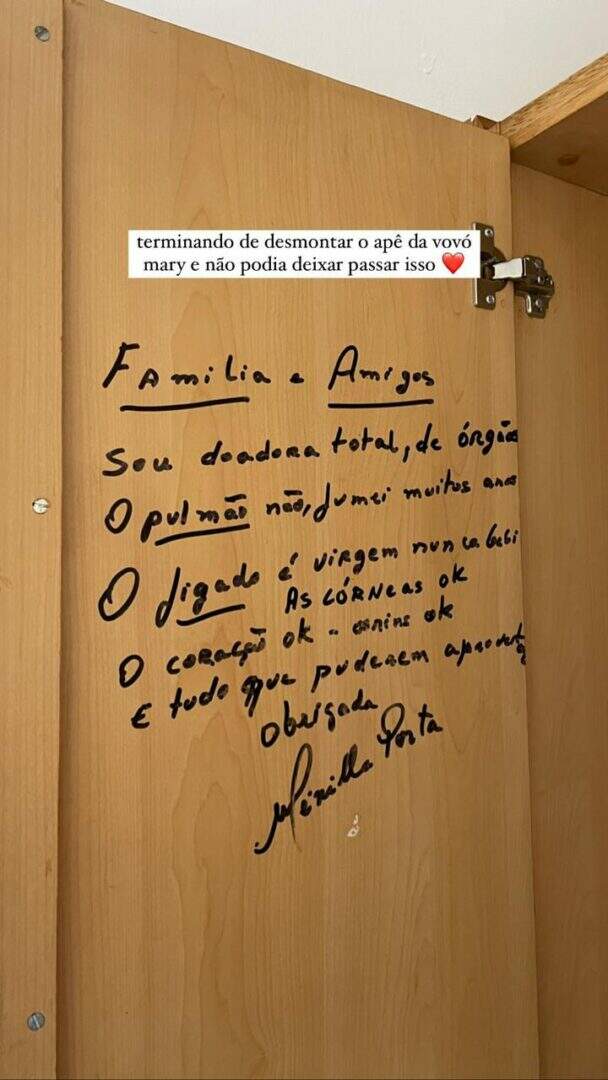 terminando de desmontar o apê da vovó
mary e não podia deixar passar isso ❤️
Familia e Amigos
Sou doadora total, de órgãos
O pulmão não, fumei muitos anos
O fígado é virgem nunca bebi
As córneas ok
O coração ok - ok
E tudo que puderem aproveitar
obrigada
Porta